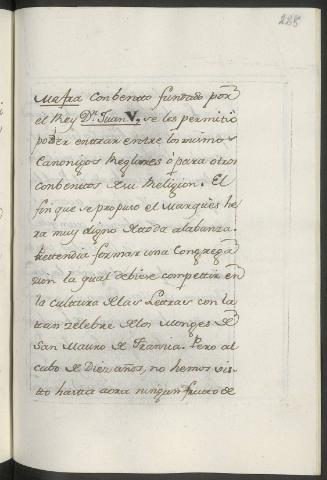 288
Mafra Conbento fundado por
el Rey Dn. Juan V, se les permitió
poder entrar entre los mismos
Canonigos Reglares ó para otros
conbentos de su Religion. El
fin que se propuso el Marques he
ra muy digno de toda alabanza.
Pretendia formar una Congrega
zion la qual debiese competir en
la cultura de las Letras con la
tan zelebre de los Monges de
San Mauro de Francia. Pero al
cabo de Diez años, no hemos vis-
tto hasta aora ningun fruto de